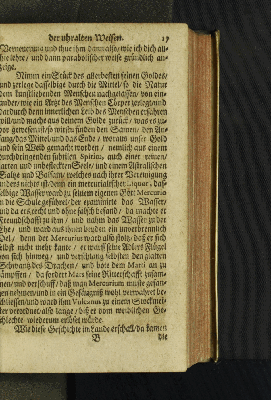 der uhralten Weisen. 19
Verneurung und thue ihm dann also/ wie ich dich all-
hie lehre/ und dann parabolischer weise gründlich an-
zeige.
Nimm ein Stück des allerbesten feinen Goldes/
und zerlege dasselbige durch die Mittel/ so die Natur
dem kunstliebenden Menschen nachgelassen/ von ein-
ander/ wie ein Artzt des Menschen Cörper zerlegt/ und
dardurch denn innerlichen Leib des Menschen erfahren
will/ und mache aus deinem Golde zurück/ was es zu-
vor gewesen ist/ so wirstu finden den Samen/ den An-
fang/ das Mittel und das Ende/ woraus unser Gold
und sein Weib gemacht worden/ nemlich aus einem
durchdringenden subtilen Spiritu, auch einer reinen/
zarten und unbefleckten Seele/ und einem Astralischen
Saltze und Balsam/ welches nach ihrer Vereinigung
anders nichts ist/ denn ein mercurialischer liquor, das-
selbige Wasser ward zu seinem eigenen Gott Mercurio
in die Schule geführet/ der examinirte das Wasser/
und da er es recht und ohne falsch befand/ da machte er
Freundschafft zu ihm/ und nahm das Wasser zu der
Ehe/ und ward aus ihnen beyden ein unverbrennlich
Oel/ denn der Mercurius ward also stoltz/ daß er sich
selbst nicht mehr kante/ er warff seine Adlers Flügel
von sich hinweg/ und verschlang selbsten den glatten
Schwantz des Drachen/ und bote dem Marti an zu
kämpffen/ da fordert Mars seine Ritterschafft zusam-
men/ und verschuff/ daß man Mercurium muste gefan-
gen nehmen/ und in ein Gefängniß wohl verwahret be-
schliessen/ und ward ihm Vulcanus zu einem Stockmei-
ster verordnet/ also lange/ biß er vom weiblichen Ge-
schlechte wiederum erlöset würde.
Wie diese Geschichte in Lande erschall/ da kamen
B die